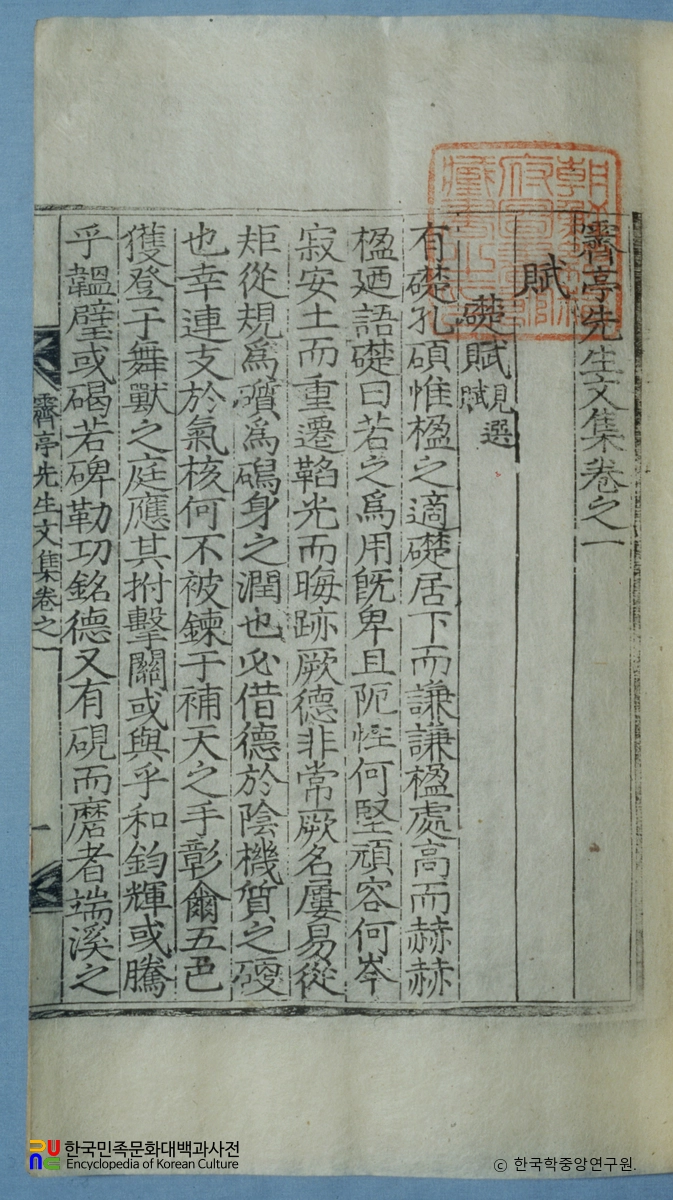 霽亭先生文集卷之一
賦
礎賦見賦選
有礎孔碩惟楹之適礎居下而謙謙楹處高而赫赫
楹廼語礎曰若之爲用旣卑且阨性何堅頑容何岑
寂安土而重遷韜光而晦跡厥德非常厥名屢易從
矩從規爲礩爲碣身之潤也必借德於陰機質之礙
也幸連支於氣核何不被鍊于補天之手彰爾五色
獲登于舞獸之庭應其拊擊關或與乎和鈞輝或騰
乎韞璧或碣若碑勒功銘德又有硯而磨者端溪之
霽亭先生文集卷之一
한국민족문화대백과사전
Encyclopedia of Korean Culture
ⓒ 한국학중앙연구원.